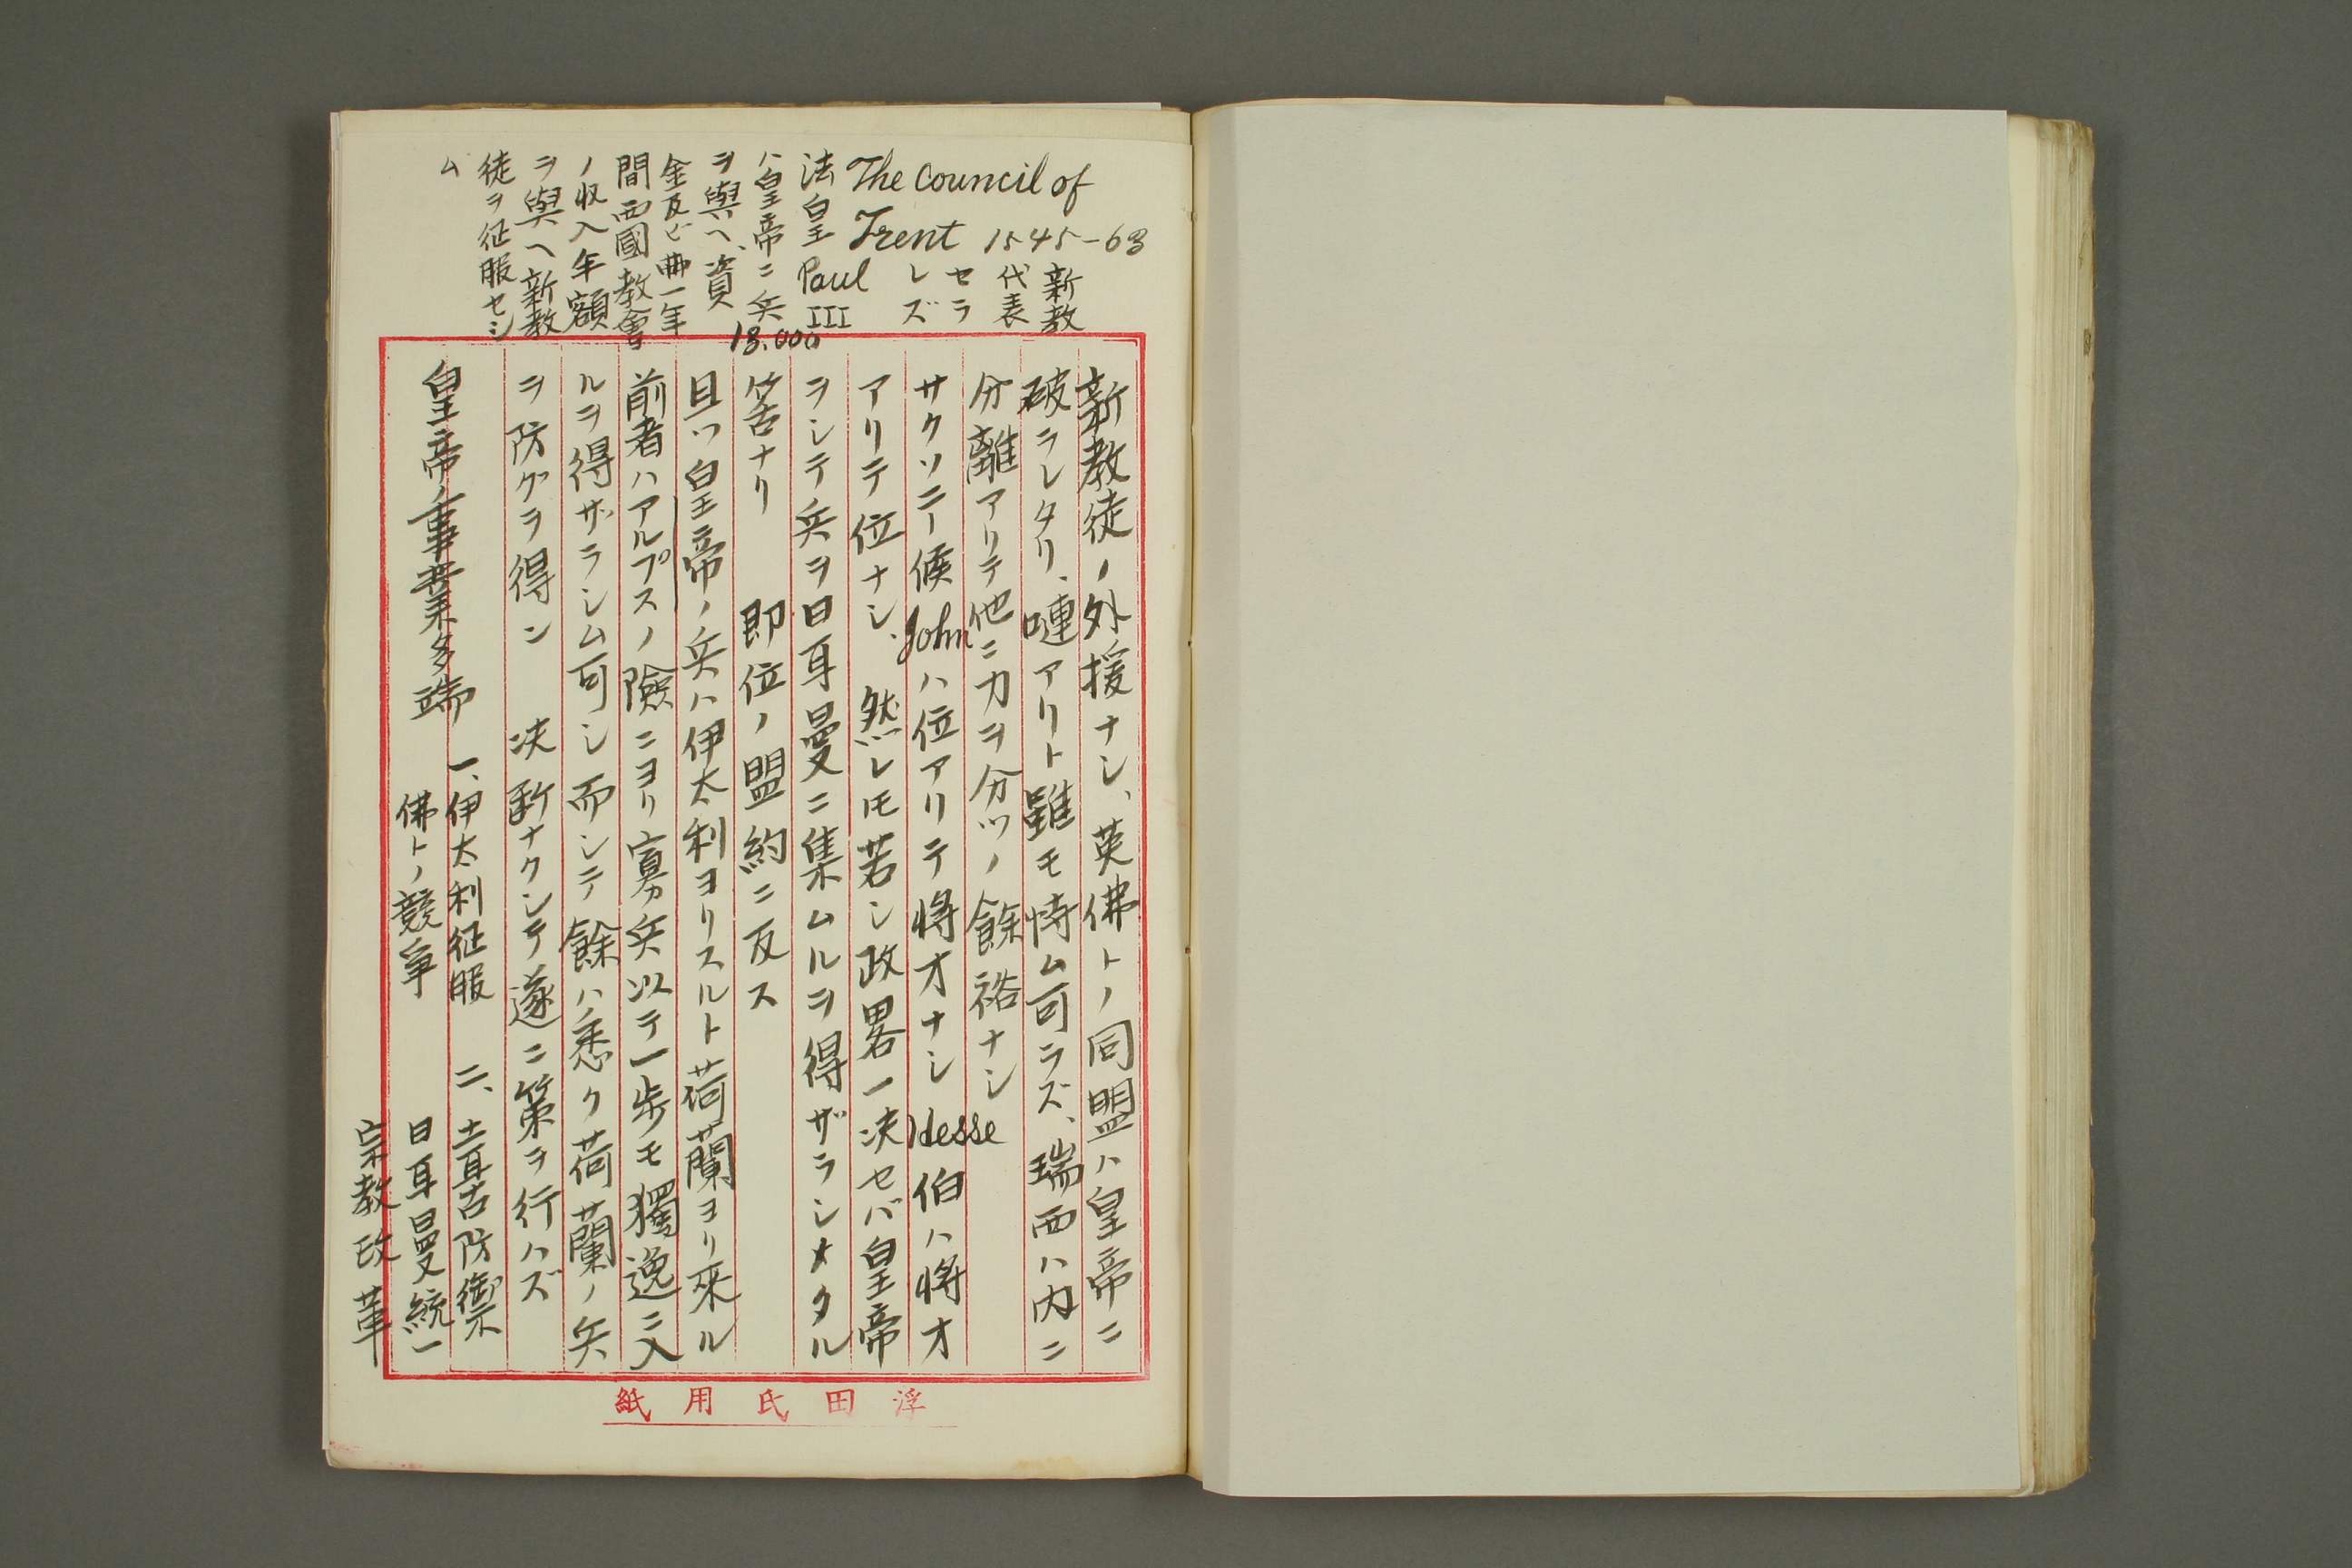 The Council of
Trent 1545-63
新教
代表
セラ
レズ
法皇 Paul III
ハ皇帝ニ兵
18.000
ヲ與ヘ、資
金及ビ一年
間西國教會
ノ収入年額
ヲ與ヘ新教
徒ヲ征服セシ
ム
新教徒ノ外援ナシ、英佛トノ同盟ハ皇帝ニ
破ラレタリ、嗹アリト雖モ恃ム可ラズ、瑞西ハ内ニ
分離アリテ他ニ力ヲ分ツノ餘裕ナシ
サクソニー侯 John ハ位アリテ将才ナシ Hesse 伯ハ将才
アリテ位ナシ、然レ𪜈若シ政畧一决セバ皇帝
ヲシテ兵ヲ日耳曼ニ集ムルヲ得ザラシメタル
筈ナリ 即位ノ盟約ニ反ス
且ツ皇帝ノ兵ハ伊太利ヨリスルト荷蘭ヨリ來ル
前者ハアルプスノ險ニヨリ寡兵以テ一歩モ獨逸ニ入
ルヲ得ザラシム可シ而シテ餘ハ悉ク荷蘭ノ兵
ヲ防グヲ得ン 决断ナクシテ遂ニ策ヲ行ハズ
皇帝ノ事業多端 一、伊太利征服 二、土耳古防禦
佛トノ競争 日耳曼統一
宗教改革
浮田氏用紙